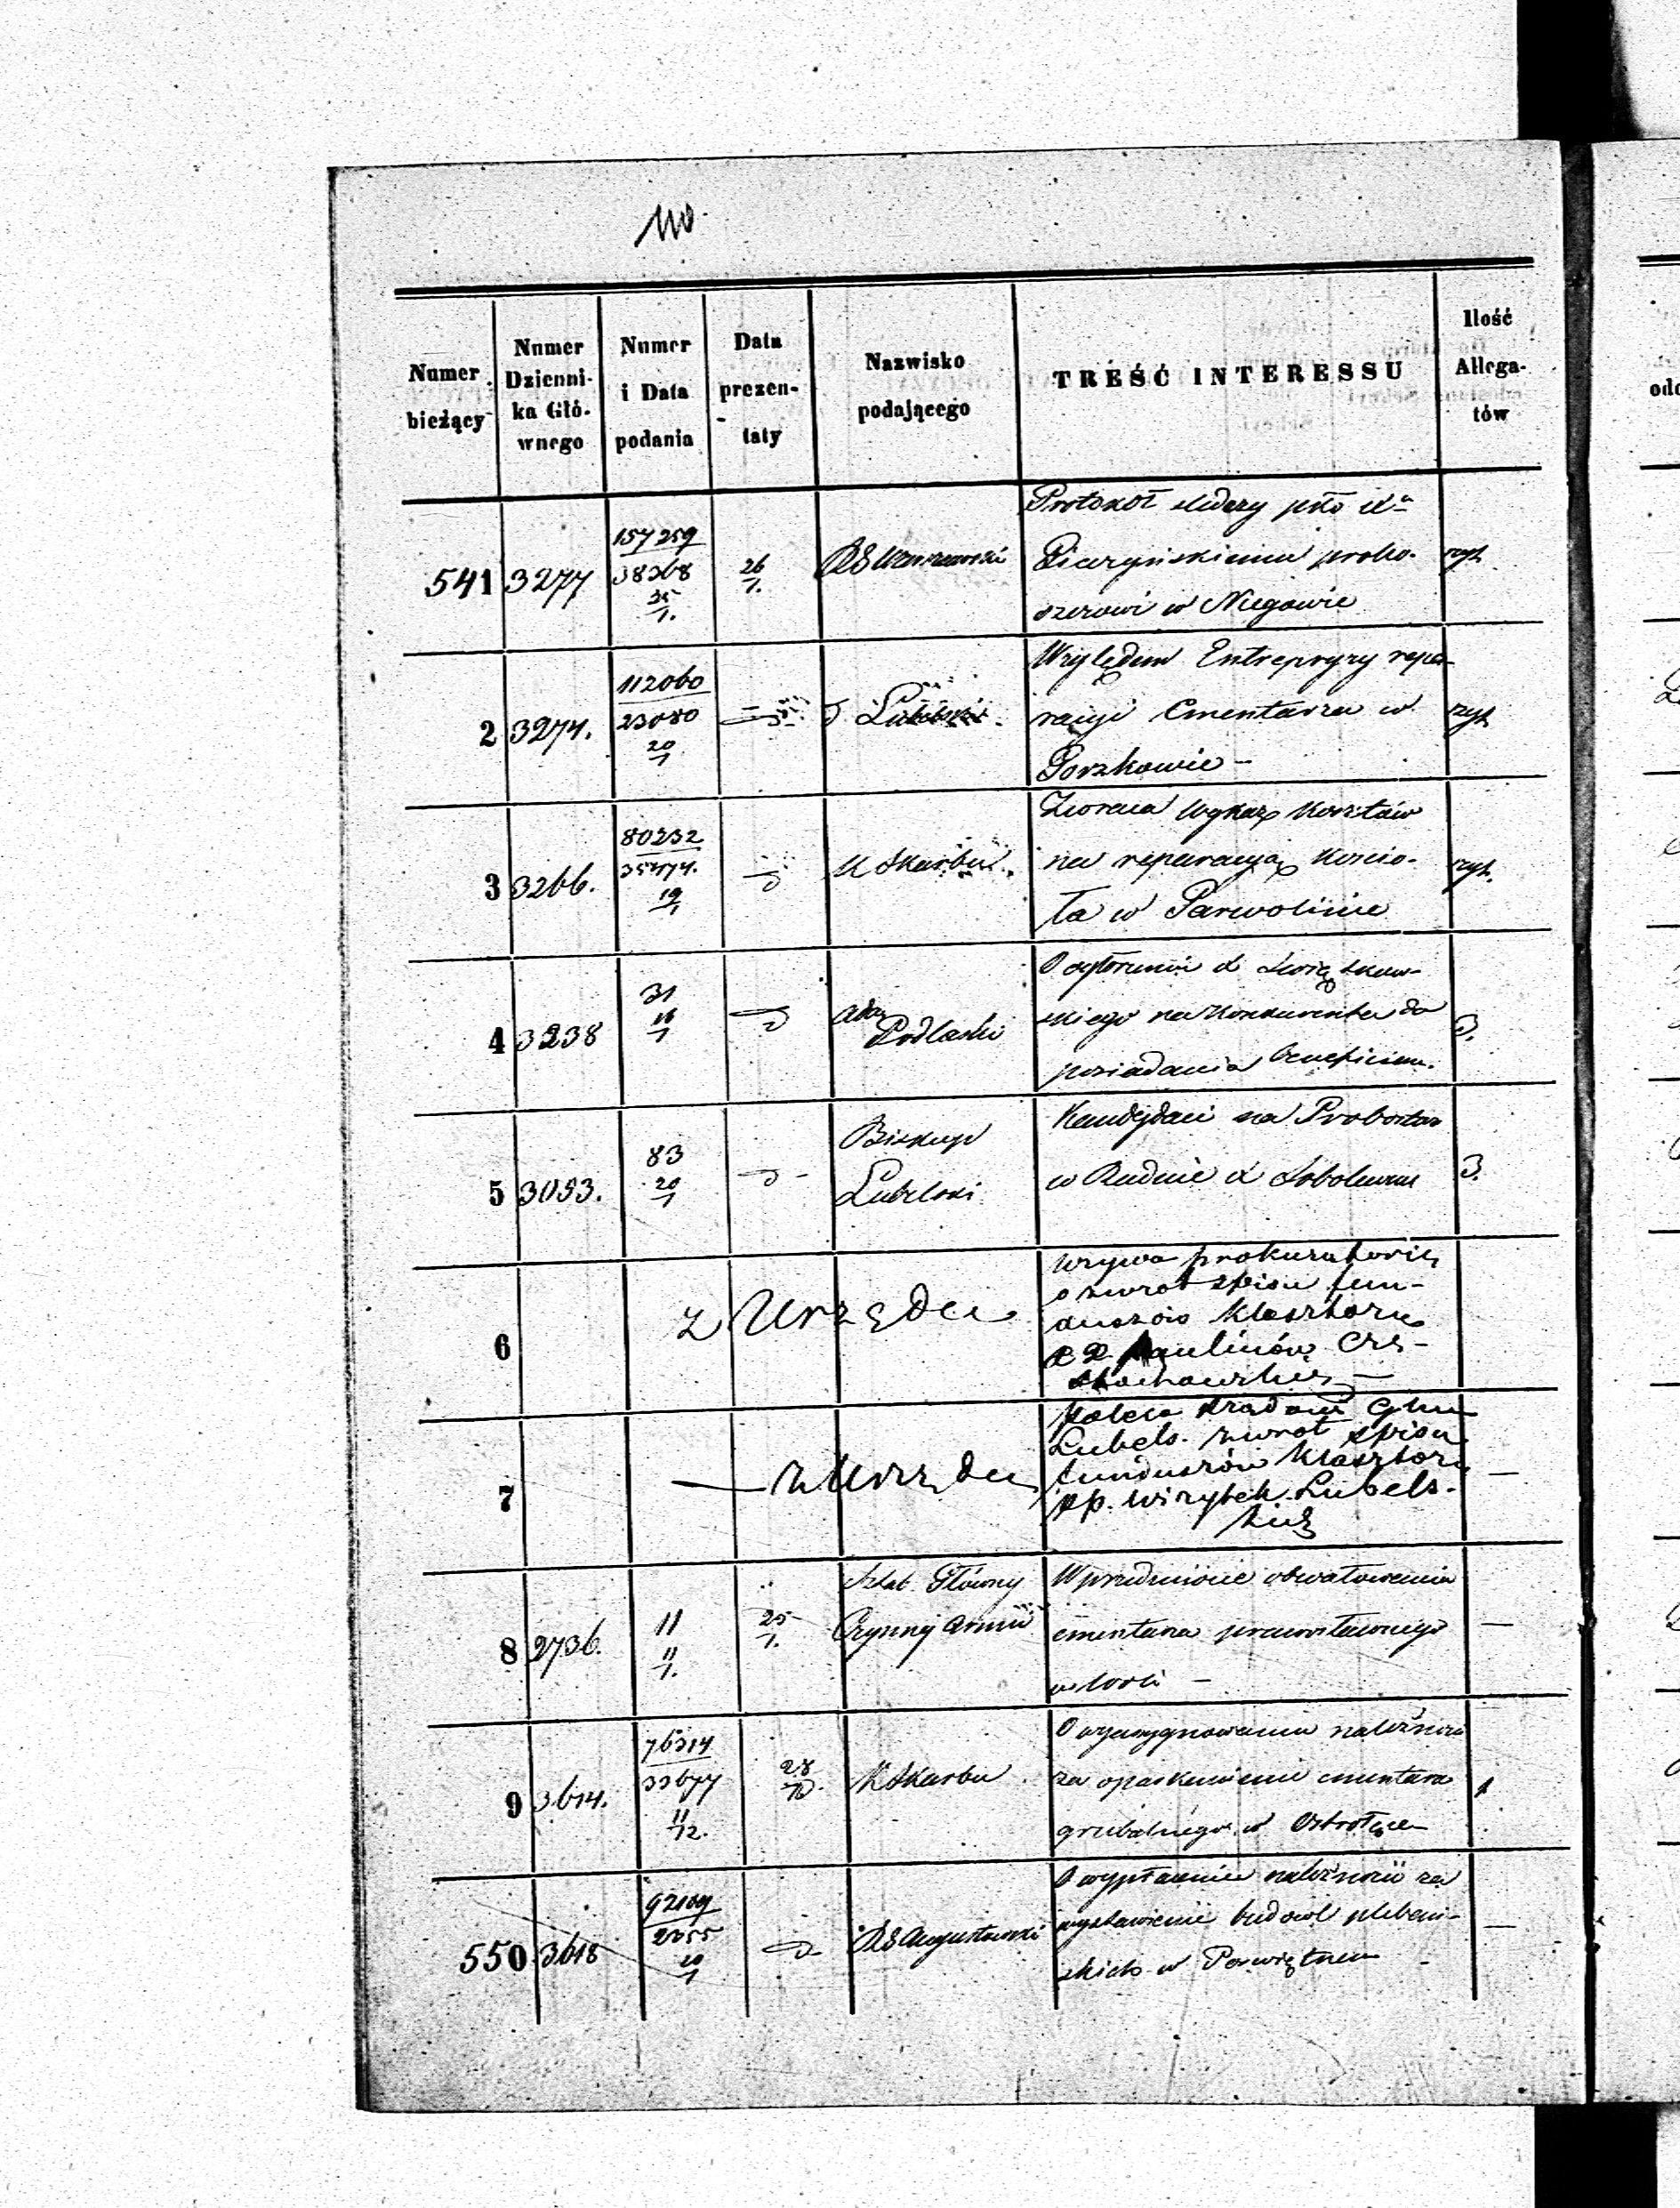 Numer bieżący
Numer Dzienni- ka Głó- wnego
Numer i Data podania
Data prezen- taty
Nazwisko podającego
TREŚĆ INTERESSU
Ilość Allega- tów
541 3277 157259 38368 25/1. 26/1. Protokół
probo-
szczowi w Niegowie
2 3274. 112060 23080 20/1 Lubelski Względem Entrepryzy repa-
racyi Cmentarza w
3 3266. 80232 35474. 19/1 K Skarbu Zwraca wykaz kosztów
na reparacyą kościo-
ła w Parwolinie
4 3238 31 Adm Podlaski
skiego na konkurenta do
posiadania beneficium. 3.
5 3053. 83 20/1 Biskup Lubelski Kandydaci na Probostwo
w Rudnie X Sobolewski 3.
6 z Urzędu wzywa prokuratorię
o zwrot spisu fun-
duszów klasztoru
XX Paulinów Czę-
stochowskich —
7 — z Urzędu poleca Rządowi Gbu
Lubels. zwrot spisu
funduszów klasztoru
pp. Wizytek Lubels-
kich —
8 2736. 11 11/1. 25/1. Sztab Główny Czynnej Armii W przedmiocie obwałowania
cmentarza prawosławnego
—
9 3614. 76314 33677 11/12. 28/ K Skarbu O wyasygnowanie należności
za oparkanienie cmentarza
grzebalnego w Ostrołęce 1
550 3618 20/1 RG Augustowski O wypłacenie należności za
wystawienie budowl plebań-
skich w Poświętnem —